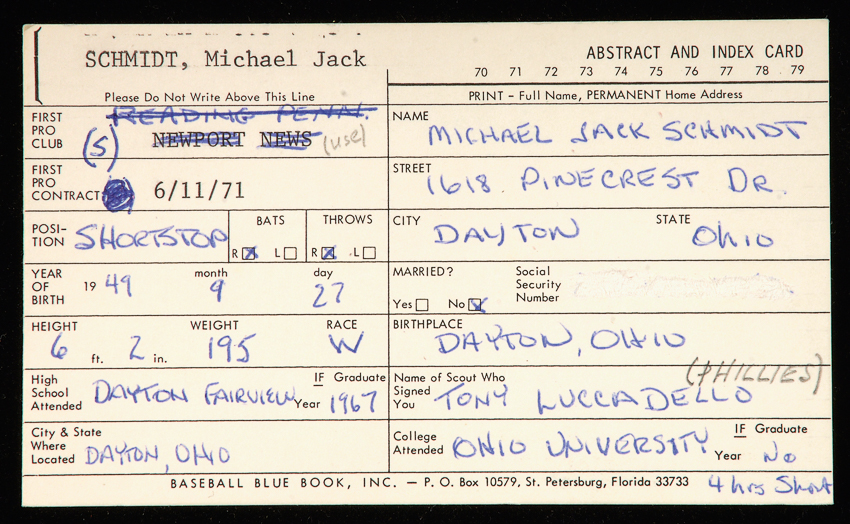 SCHMIDT, Michael Jack
ABSTRACT AND INDEX CARD
70 71 72 73 74 75 76 77 78 79
Please Do Not Write Above This Line
PRINT – Full Name, PERMANENT Home Address
FIRST PRO CLUB
READING PENN.
(5) NEWPORT NEWS (use)
NAME
MICHAEL JACK SCHMIDT
FIRST PRO CONTRACT
6/11/71
STREET
1618 PINECREST DR.
POSI-TION SHORTSTOP
BATS
R ☒ L ☐
THROWS
R ☒ L ☐
CITY DAYTON
STATE OHIO
YEAR OF BIRTH 19 49
month 9
day 27
MARRIED?
Yes ☐ No ☒
Social Security Number
HEIGHT
6 ft. 2 in.
WEIGHT
195
RACE
W
BIRTHPLACE
DAYTON, OHIO
High School Attended DAYTON FAIRVIEW
IF Graduate
Year 1967
Name of Scout Who Signed You TONY LUCCADELLO
(PHILLIES)
City & State Where Located DAYTON, OHIO
College Attended OHIO UNIVERSITY
IF Graduate
Year No
4 hrs Short
BASEBALL BLUE BOOK, INC. — P. O. Box 10579, St. Petersburg, Florida 33733